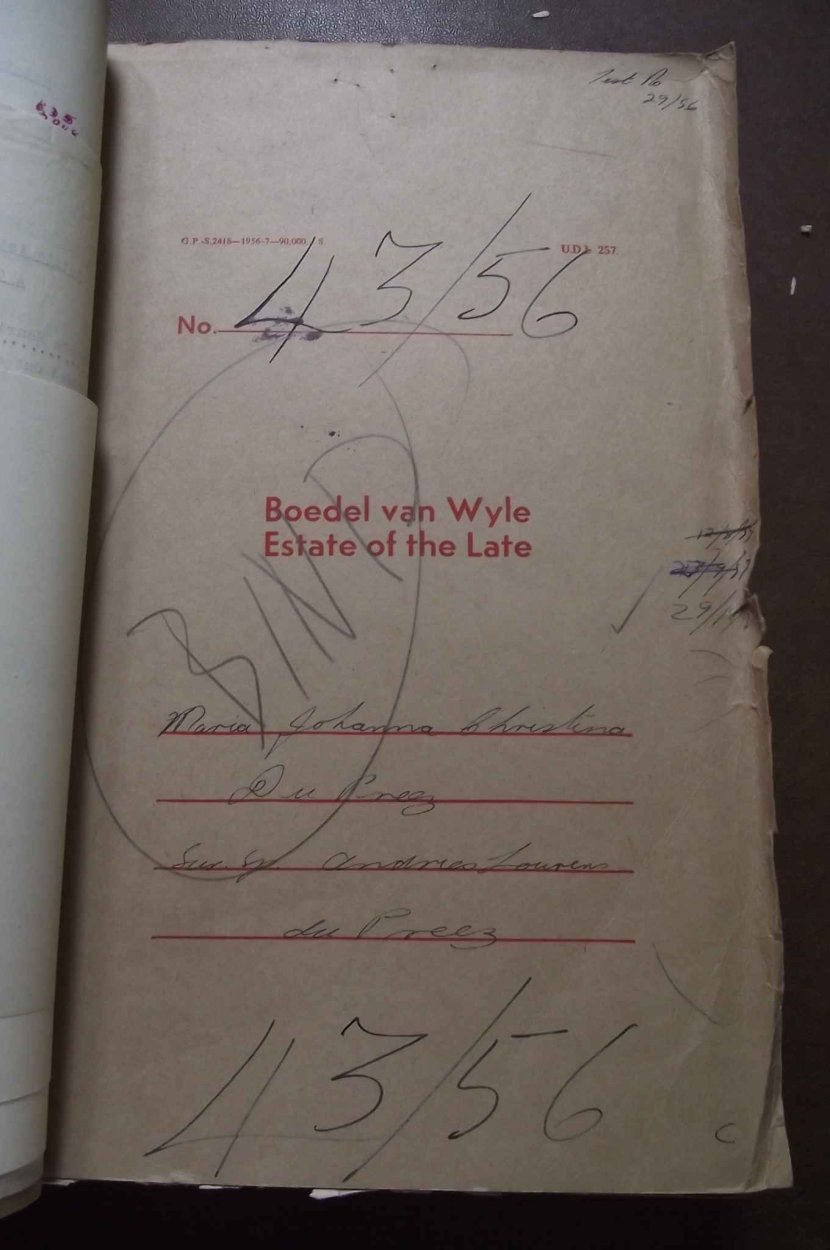 Test No
29/56
G.P.-S.2418—1956-7—90,000. S
U.D.J. 257.
No. 43/56
Boedel van Wyle
Estate of the Late
BIND
29/1
Maria Johanna Christina
Du Preez
Sur. Sp. Andries Lourens
du Preez
43/56
C